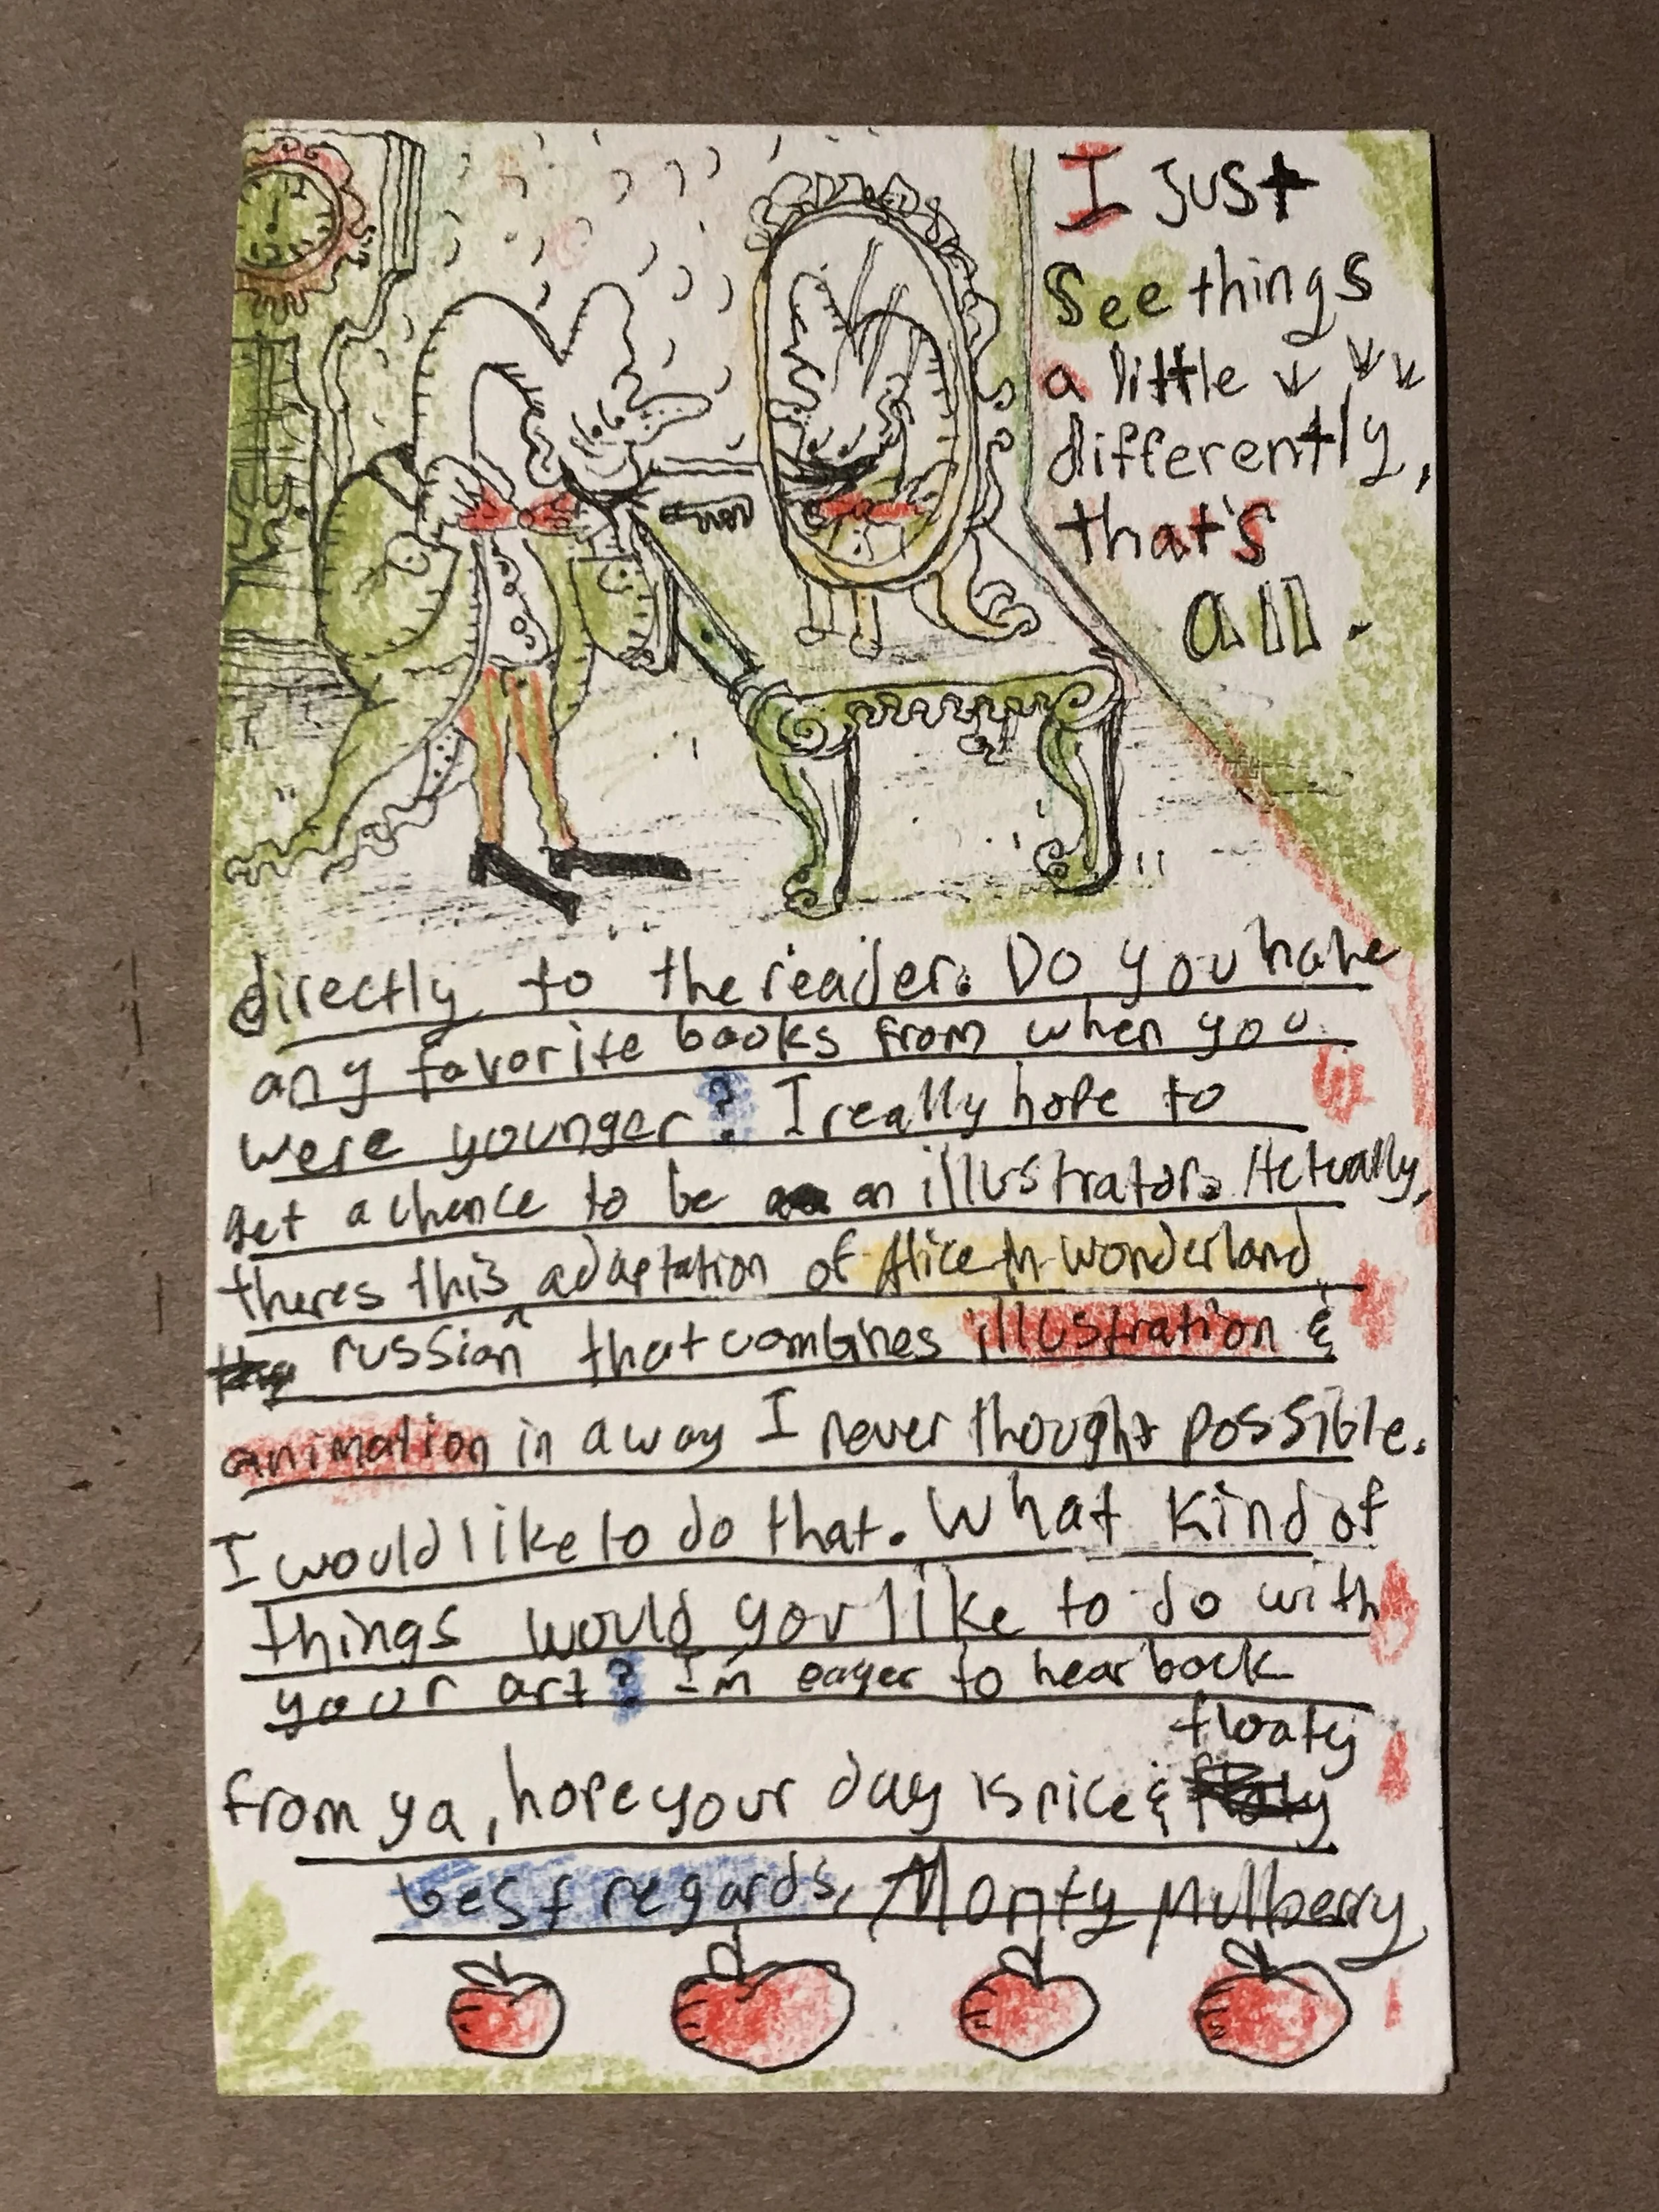 I just
see things
a little
differently,
that's
all.
directly to the reader. Do you have
any favorite books from when you
were younger? I really hope to
get a chance to be an illustrator. Actually,
theres this adaptation of Alice in wonderland
russian ^ that combines illustration &
animation in a way I never thought possible.
I would like to do that. What kind of
things would you like to do with
your art? I'm eager to hear back
floaty
from ya, hope your day is nice &
best regards, Monty Mulberry